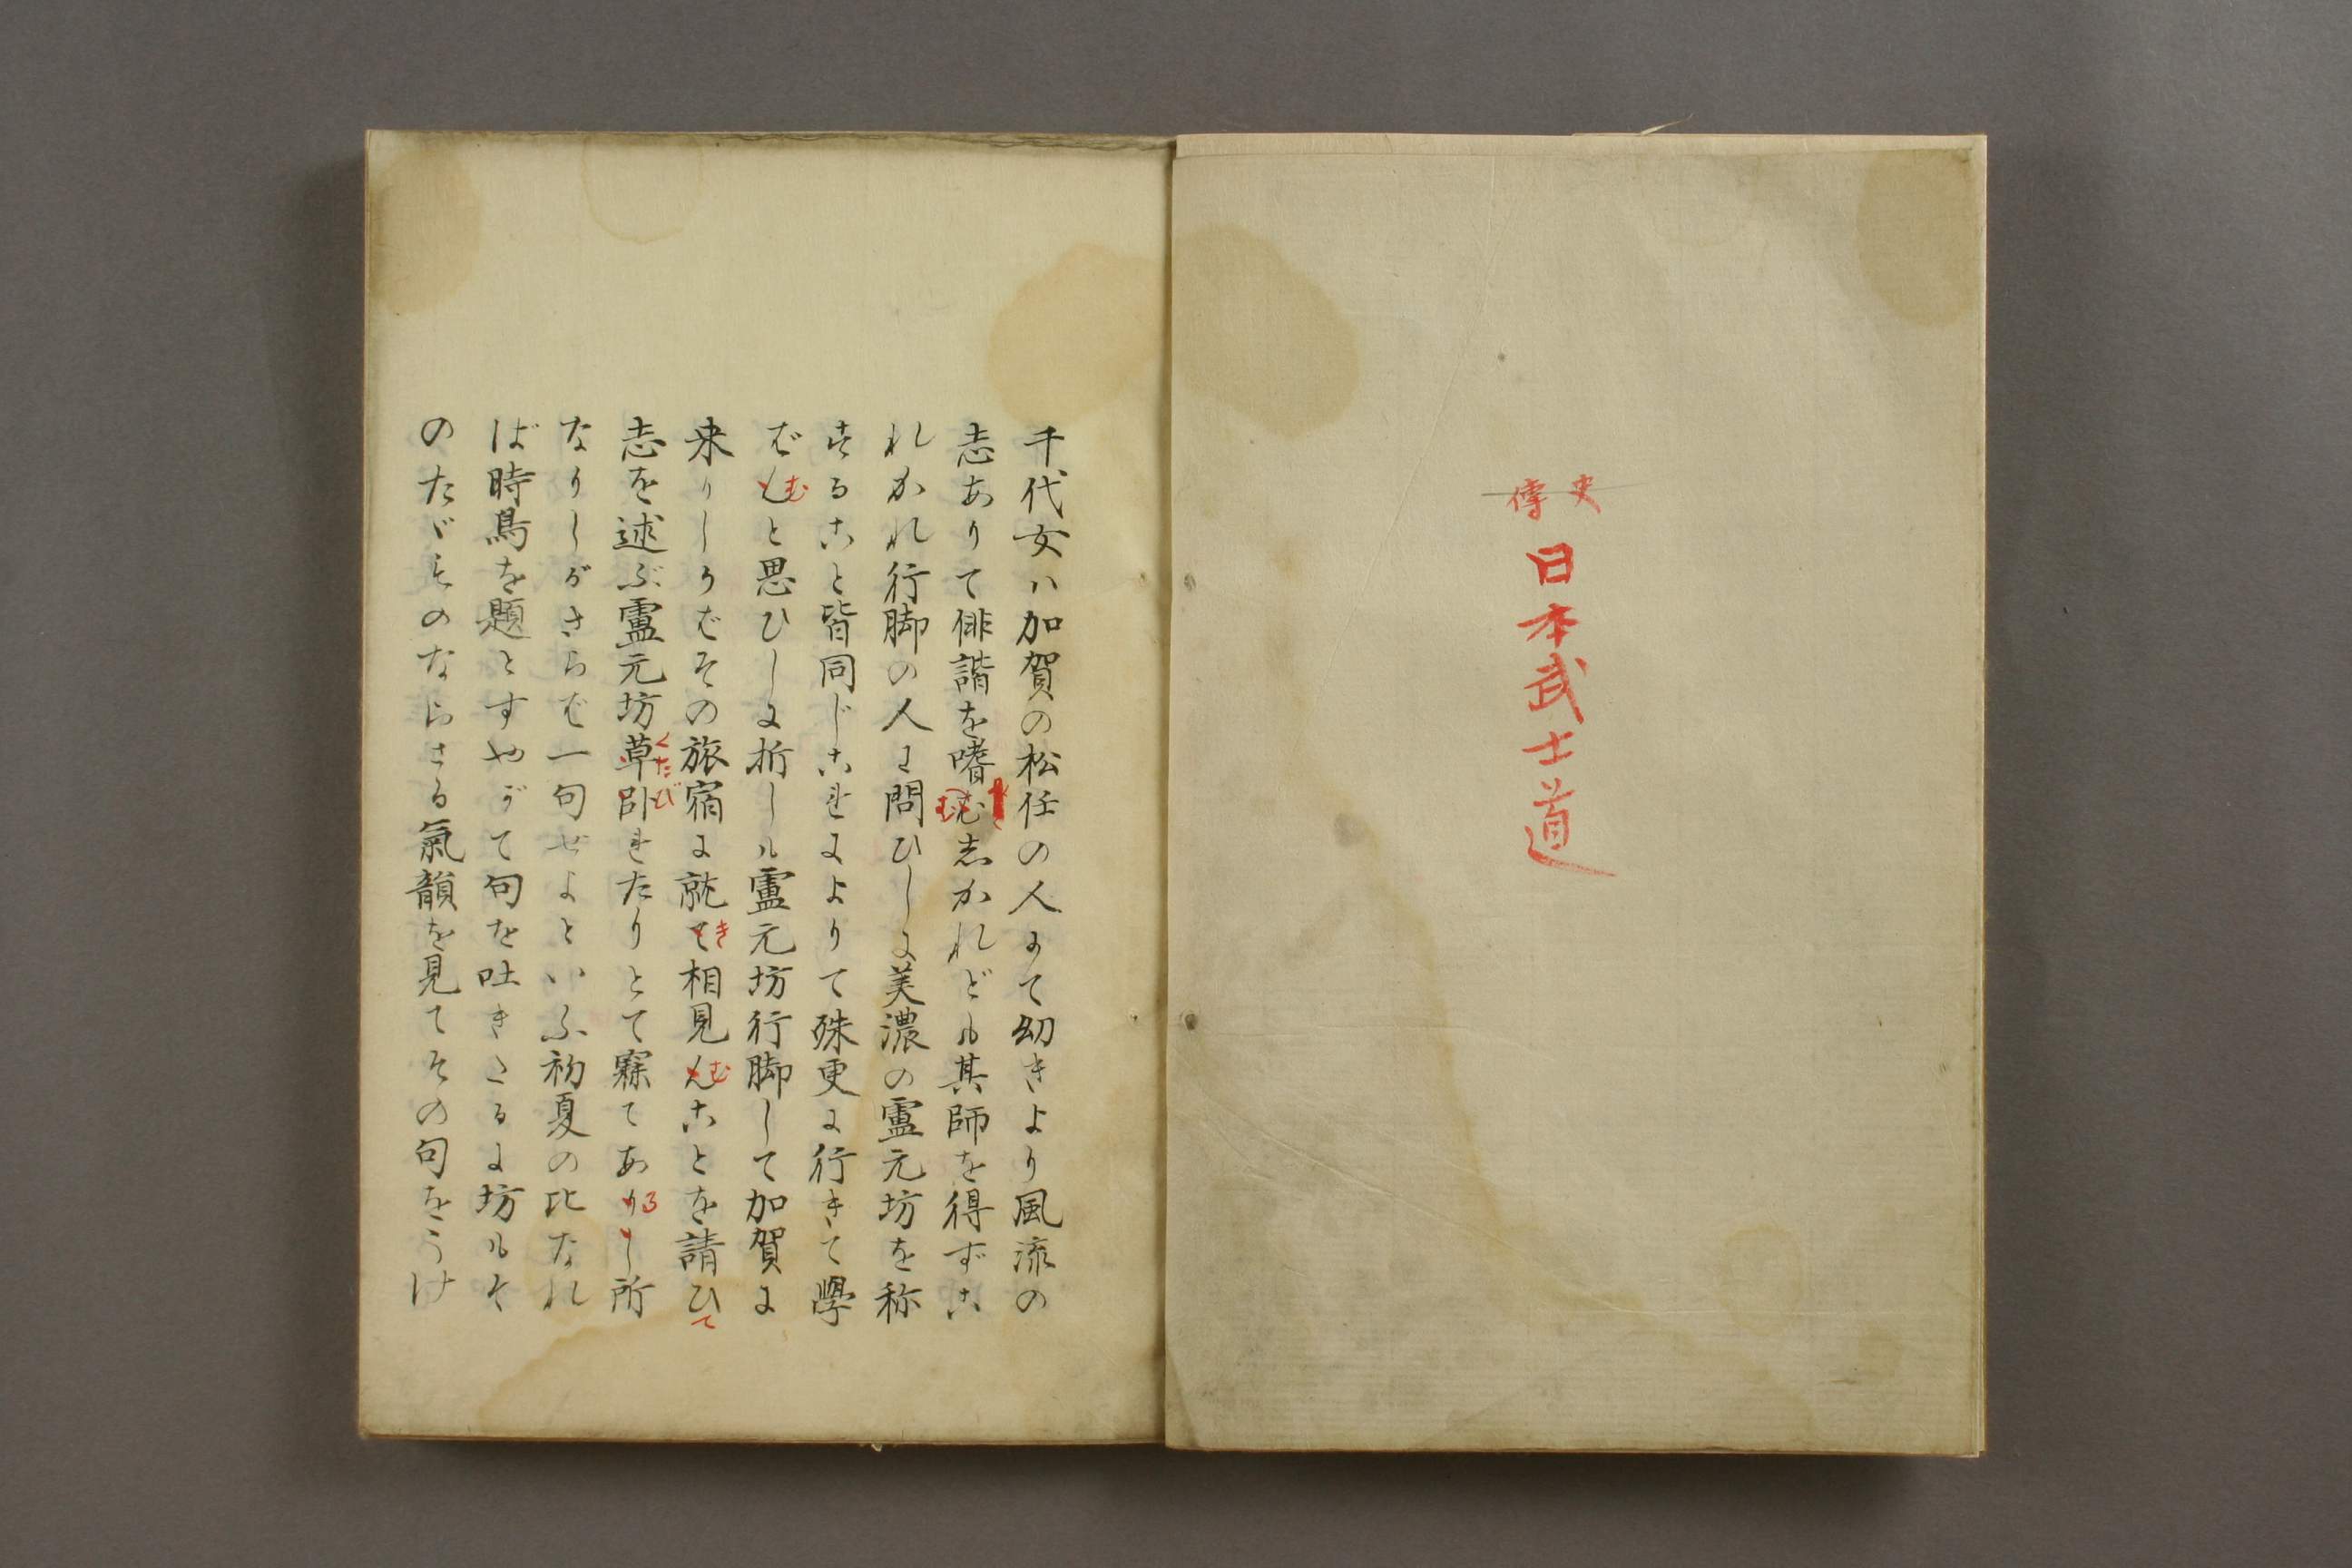 史傳
日本武士道
千代女ハ加賀の松任の人にて幼きより風流の
志ありて俳諧を嗜むむ志かれども其師を得ずこ
れかれ行脚の人に問ひしに美濃の盧元坊を称
することと皆同じこれによりて殊更に行きて學
ばんむと思ひしに折しも盧元坊行脚して加賀に
来りしかばその旅宿に就てき相見んむことを請ひて
志を述ぶ盧元坊草臥くたびれたりとて寐てありるし所
なりしがさらば一句せよといふ初夏の比なれ
ば時鳥を題とすやがて句を吐きたるに坊もそ
のたゞものならざる氣韻を見てその句をうけ